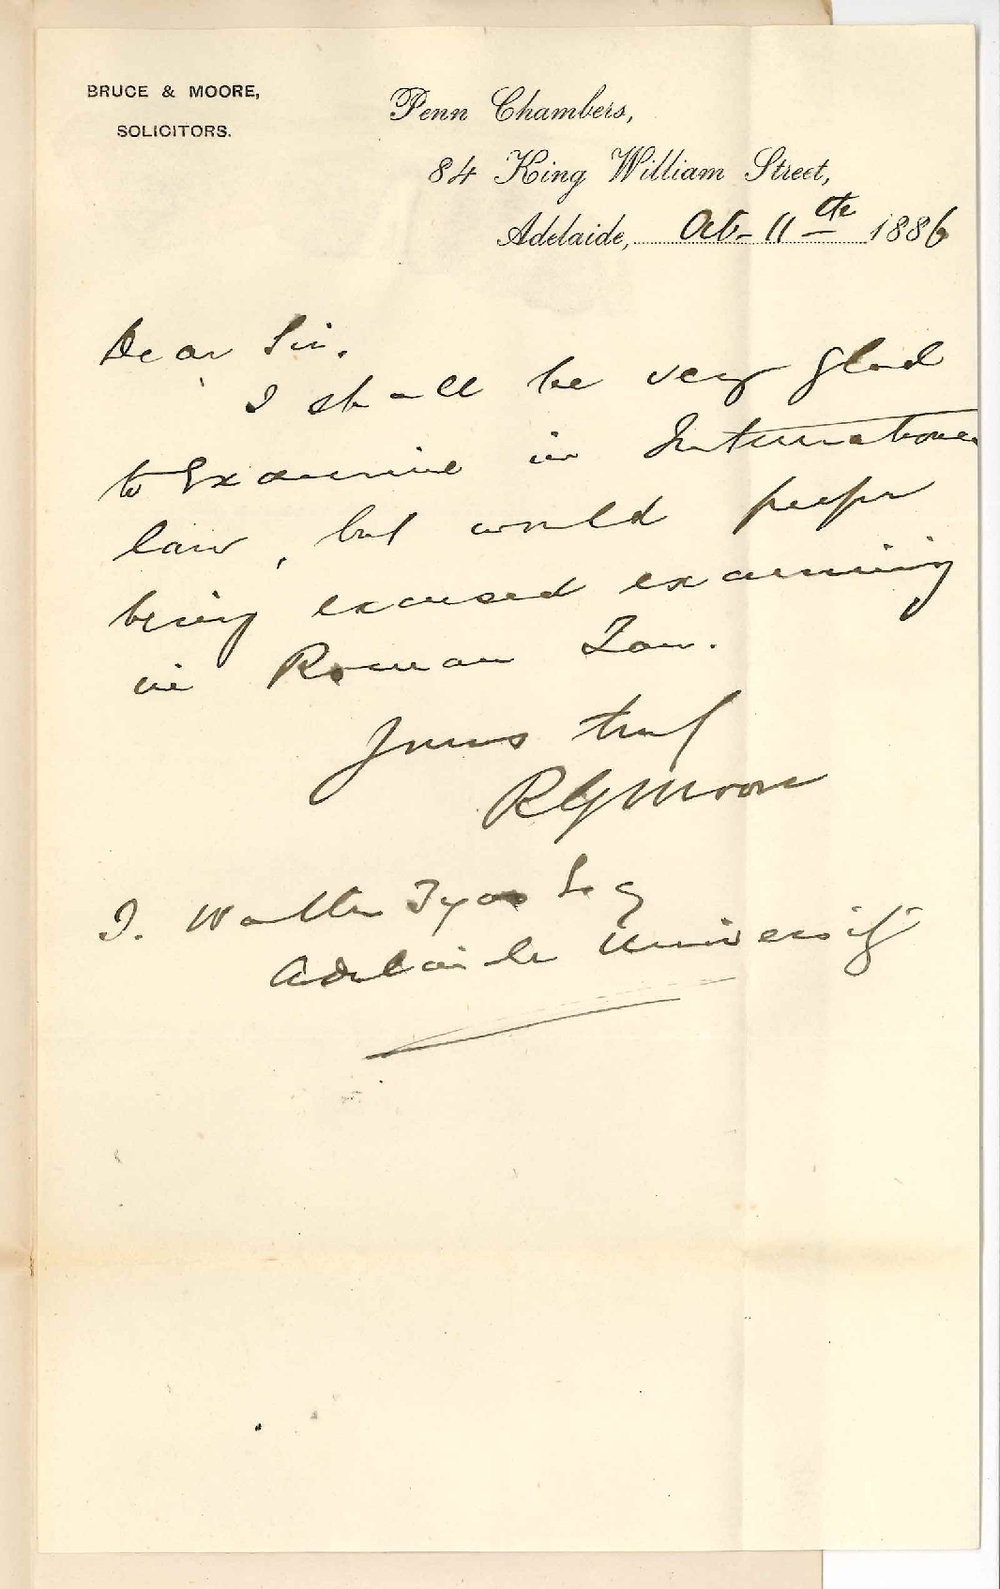 BRUCE & MOORE,
SOLICITORS.
Penn Chambers,
84 King William Street,
Adelaide, Oct 11th 1886
Dear Sir.
I shall be very glad
to Examine in International
law, but would prefer
being excused examining
in Roman Law.
Yours truly
R G Moore
J. Walter Tyas Esq
Adelaide University